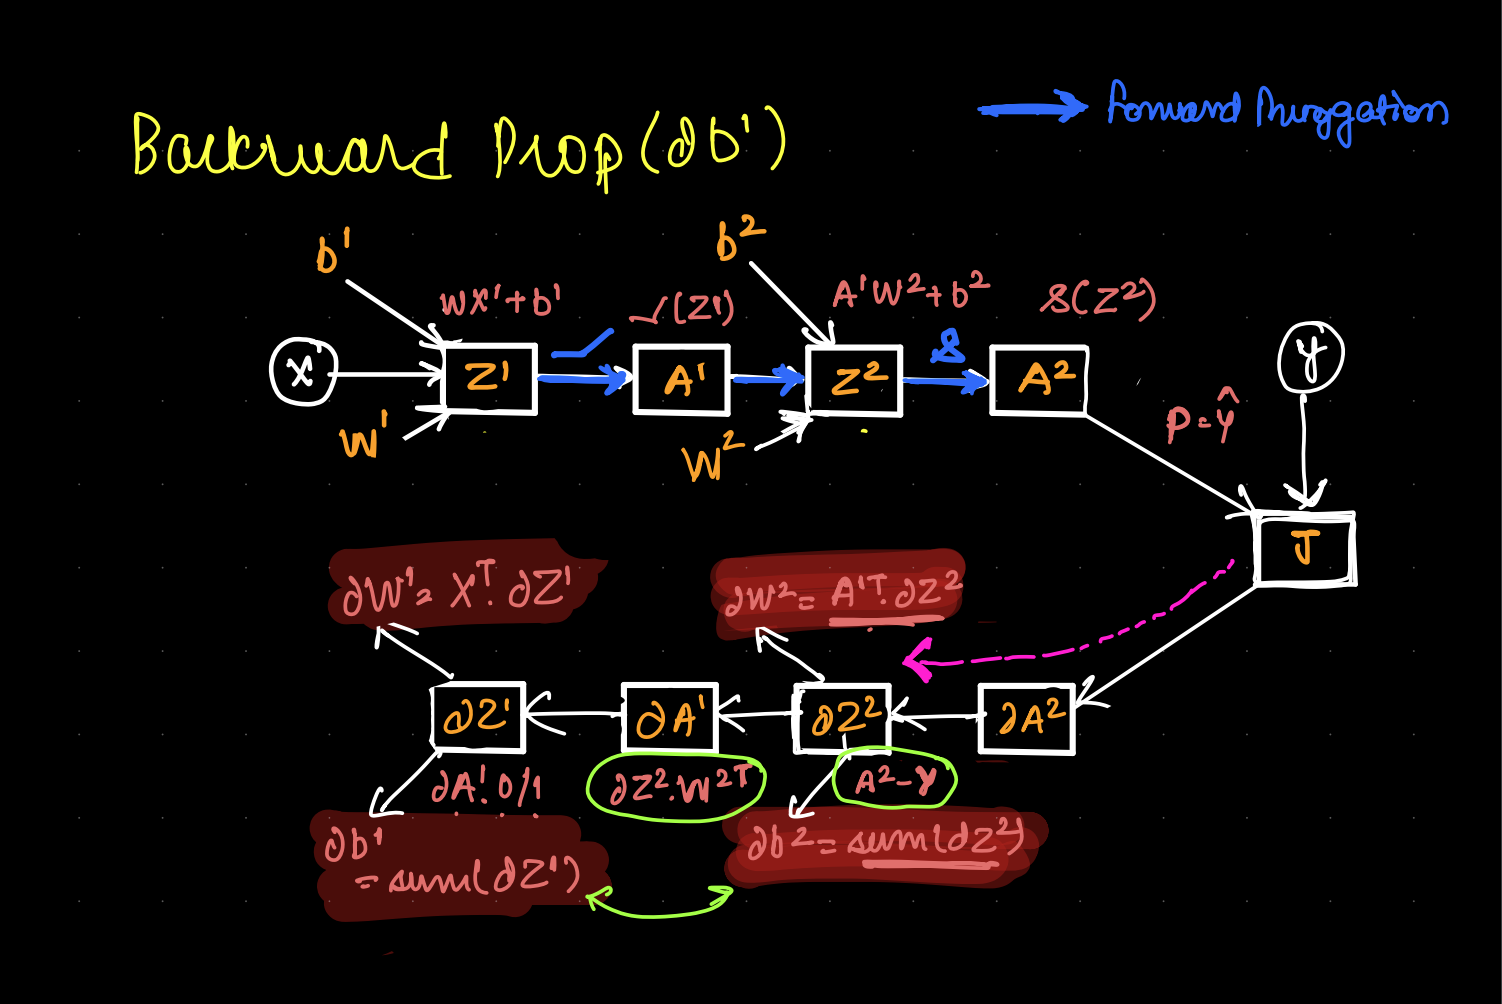 Backward Prop(∂b¹)
Forward
b¹
b²
WX¹+b¹
(Z¹)
A¹W²+b²
S(Z²)
X
Z¹
A¹
Z²
S
A²
Y
W¹
W²
P=Ŷ
J
∂W¹= Xᵀ.∂Z¹
∂W²= A¹ᵀ.∂Z²
∂Z¹
∂A¹
∂Z²
∂A²
∂A¹.0/1
∂Z².W²ᵀ
A²-Y
∂b¹
= sum(∂Z¹)
∂b²= sum(∂Z²)